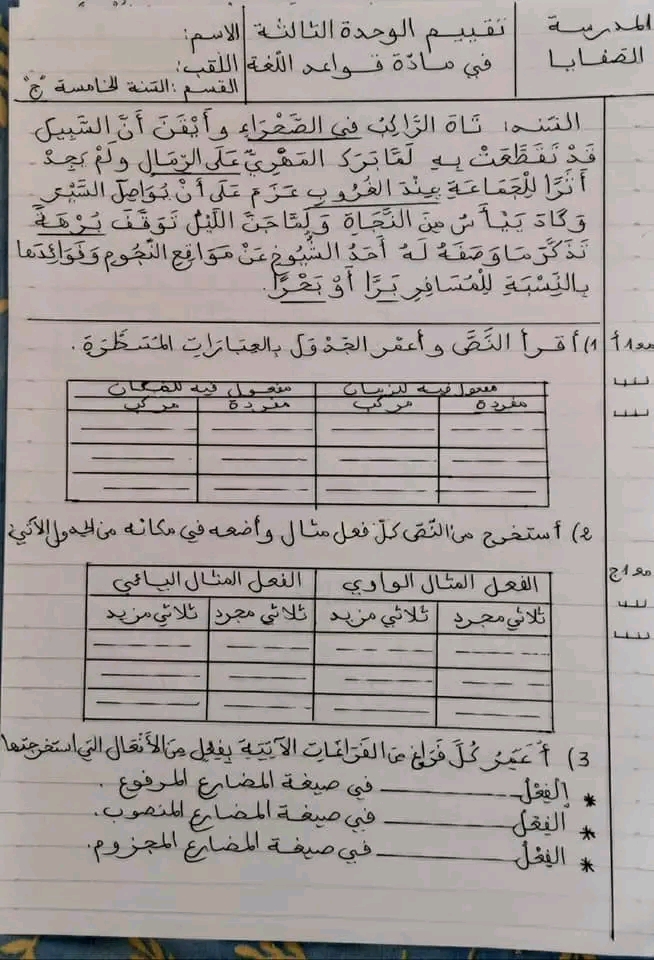 المدرسة
الصفايا
تقييم الوحدة الثالثة
في مادّة قواعد اللّغة
الاسم:
اللّقب:
القسم: السّنة الخامسة "ج"
السّند: تَاهَ الرَّاكِبُ في الصَّحْرَاءِ وأَيْقَنَ أَنَّ السَّبِيلَ
قَدْ تَقَطَّعَتْ بِهِ لَمَّا بَرَكَ المَهْرِيُّ عَلَى الرِّمَالِ ولَمْ يَجِدْ
أَثَرًا لِلْجَمَاعَةِ عِنْدَ الغُرُوبِ عَزَمَ عَلَى أَنْ يُوَاصِلَ السَّيْرَ
وَكَادَ يَيْأَسُ مِنَ النَّجَاةِ وَلَمَّا جَنَّ اللَّيْلُ تَوَقَّفَ بُرْهَةً
تَذَكَّرَ مَا وَصَفَهُ لَهُ أَحَدُ الشُّيُوخِ عَنْ مَوَاقِعِ النُّجُومِ وَفَوَائِدِهَا
بِالنِّسْبَةِ لِلْمُسَافِرِ بَرًّا أَوْ بَحْرًا.
مع1أ
1) أقرأ النَّصَّ وأعمّر الجَدْوَلَ بالعِبَارَاتِ المُسَطَّرَةِ.
مفعول فيه للزمان
مفعول فيه للمكان
مفردة
مركب
مفردة
مركب
2) أستخرج من النّصّ كلّ فعل مثال وأضعه في مكانه من الجدول الآتي:
مع1ج
الفعل المثال الواوي
الفعل المثال اليائي
ثلاثي مجرد
ثلاثي مزيد
ثلاثي مجرد
ثلاثي مزيد
3) أُعَمِّرُ كُلَّ فَرَاغٍ مِنَ الفَرَاغَاتِ الآتِيَةِ بِفِعْلٍ مِنَ الأَفْعَالِ التي استخرجتها
* الفِعْلُ في صيغة المضارع المرفوع.
* الفِعْلُ في صيغة المضارع المنصوب.
* الفِعْلُ في صيغة المضارع المجزوم.